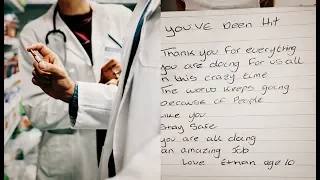 you've Been Hit
Thank you for everything
you are doing for us all
in this crazy time
The world keeps going
because of People
like you
Stay Safe
you are all doing
an amazing Job
Love Ethan age 10